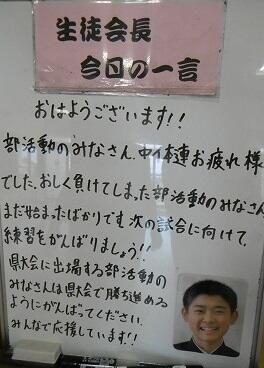 生徒会長
今日の一言
おはようございます!!
部活動のみなさん、中体連お疲れ様
でした。おしく負けてしまった部活動のみなさん
まだ始まったばかりです。次の試合に向けて、
練習をがんばりましょう!!
県大会に出場する部活動の
みなさんは県大会で勝ち進める
ようにがんばってください。
みんなで応援しています!!